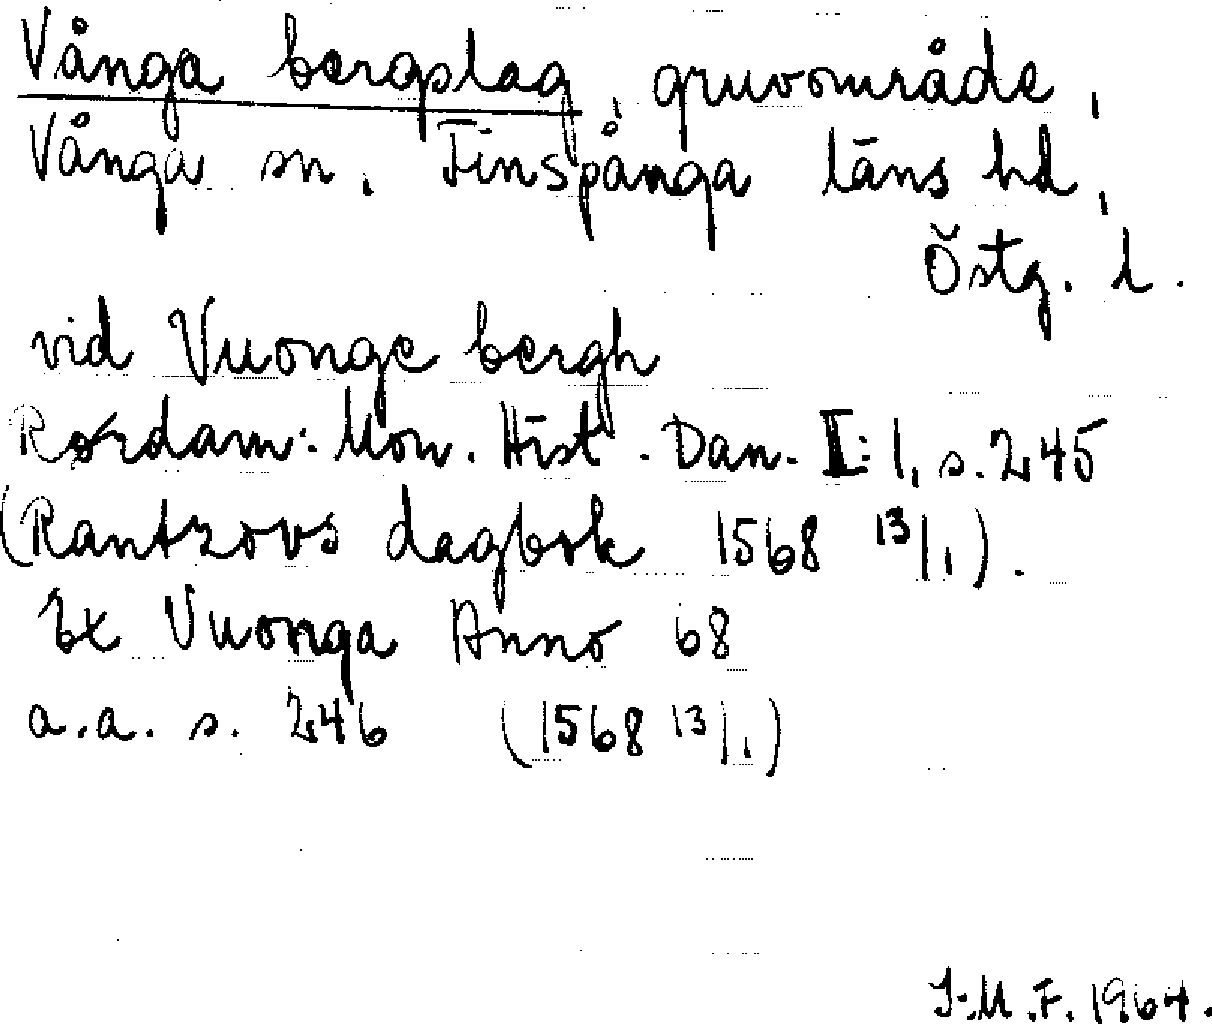 Vånga bergslag, gruvområde,
Vånga sn, Finspånga läns hd,
Östg. l.
vid Vuonge bergh
Rørdam: Mon. Hist. Dan. II: 1, s. 245
(Rantzovs dagbok 1568 13/1).
Ex Vuonga Anno 68
a.a. s. 246 (1568 13/1)
J.M.F. 1964.